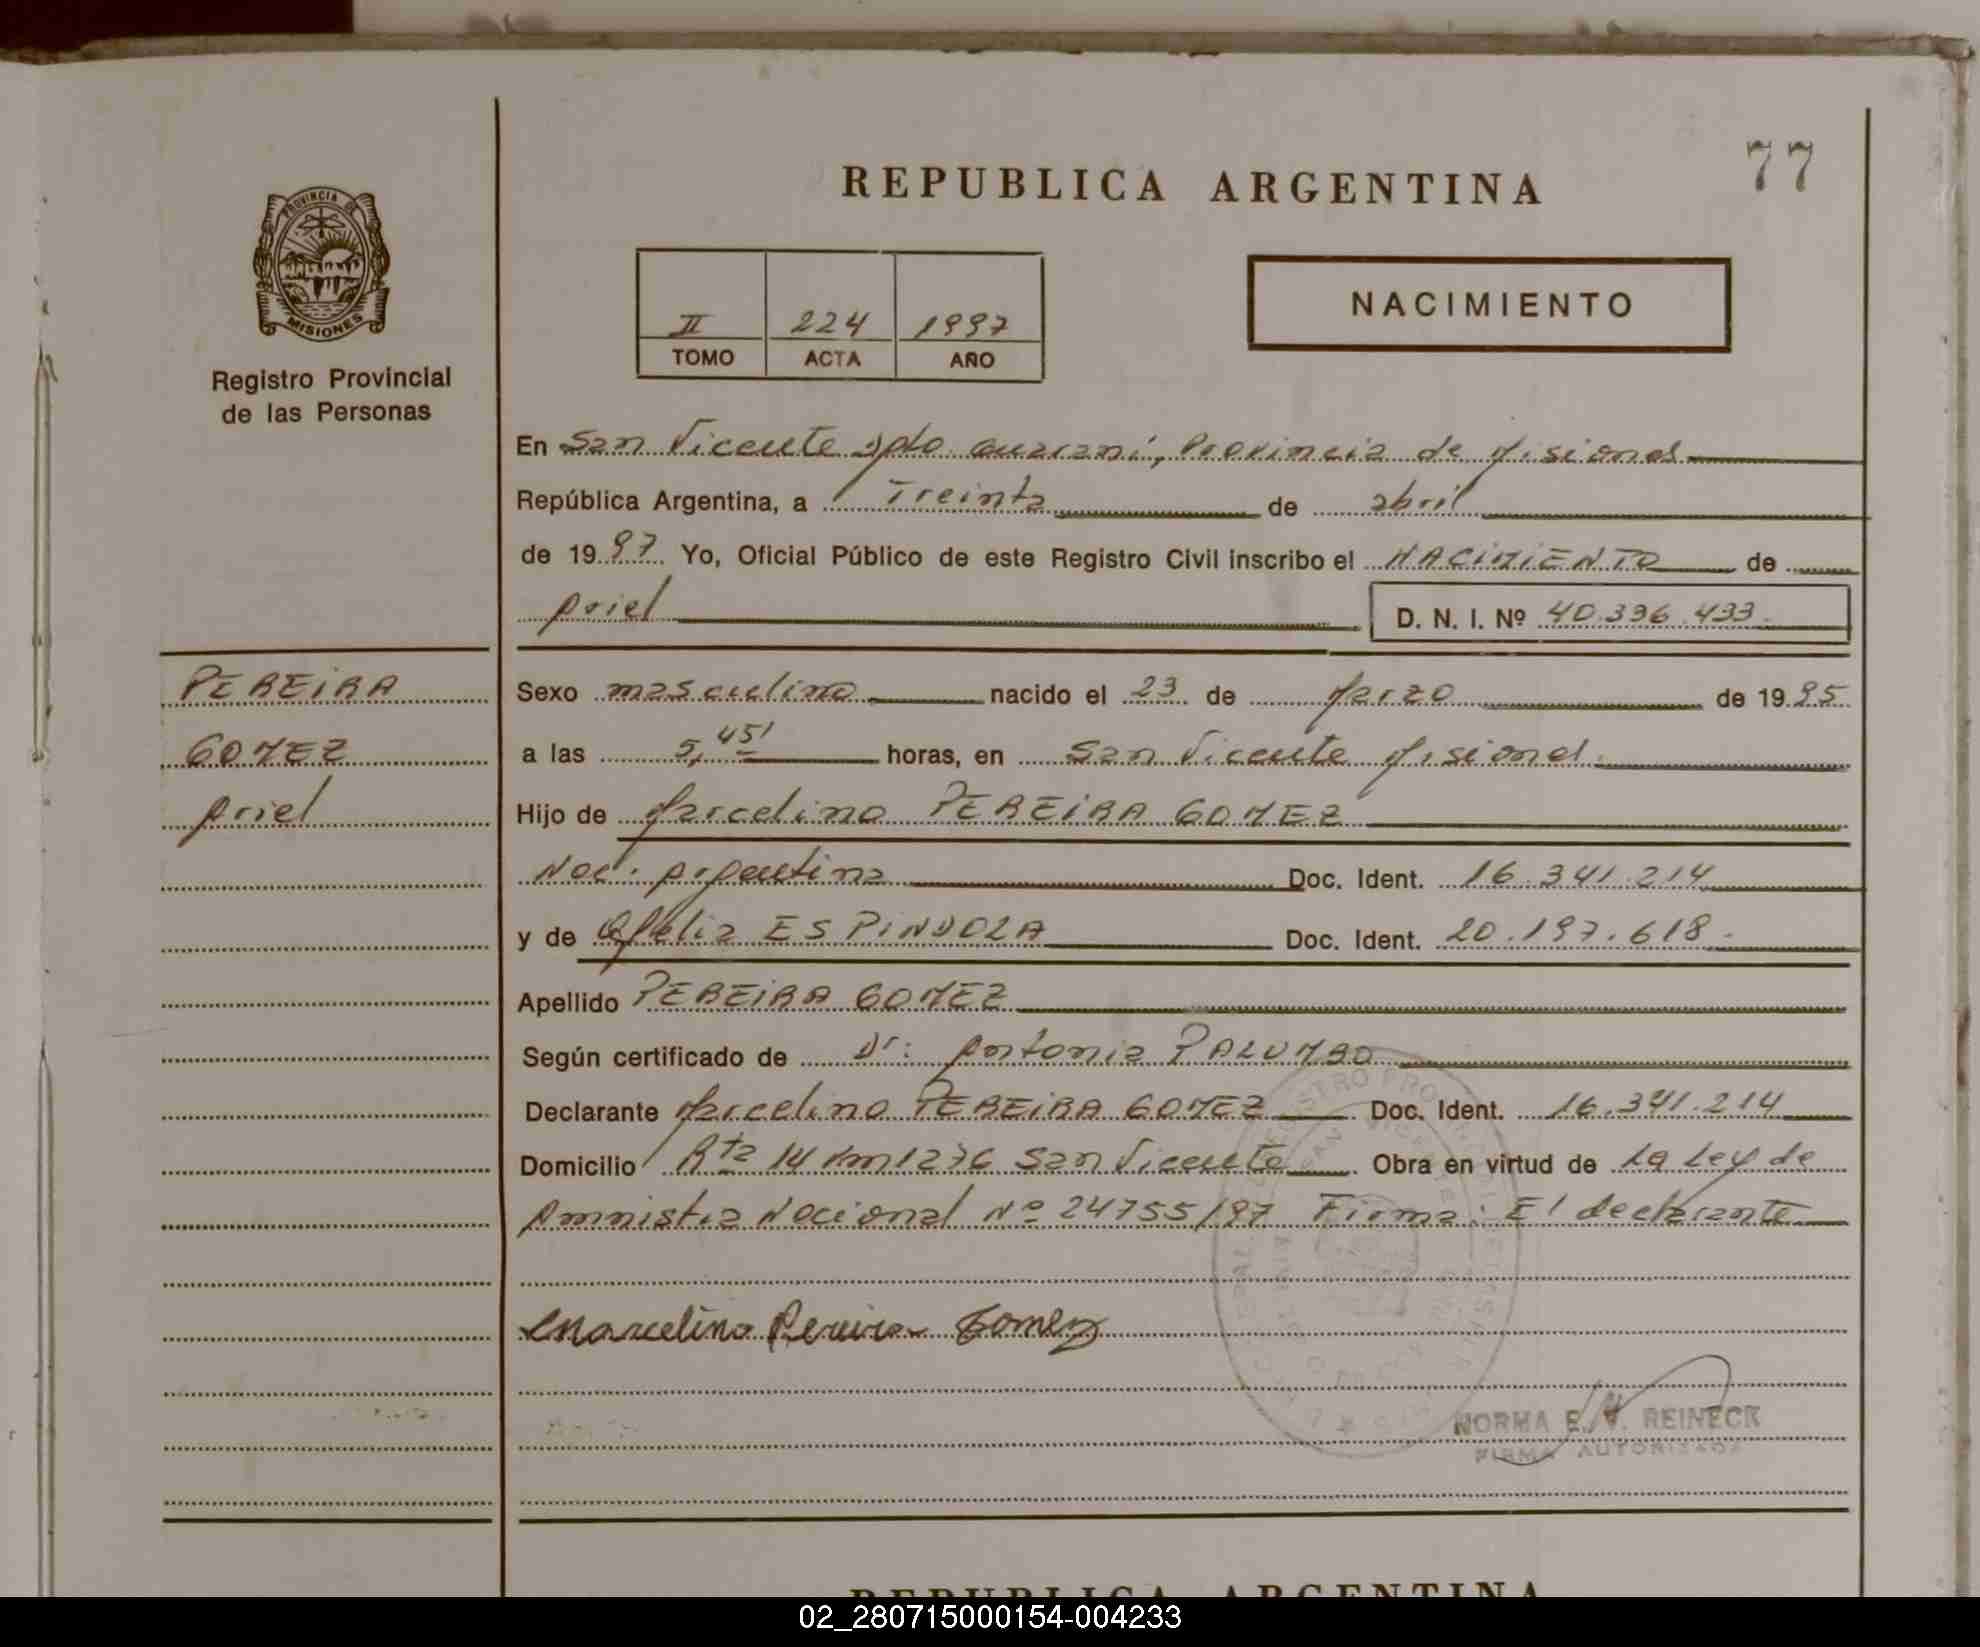 77
REPUBLICA ARGENTINA
PROVINCIA DE
MISIONES
Registro Provincial
de las Personas
II 224 1997
TOMO ACTA AÑO
NACIMIENTO
En San Vicente Dpto. Guaraní, Provincia de Misiones
República Argentina, a Treinta de abril
de 1997. Yo, Oficial Público de este Registro Civil inscribo el NACIMIENTO de
Ariel D. N. I. Nº 40.336.433.
PEREIRA
GOMEZ
Ariel
Sexo masculino nacido el 23 de Marzo de 1995
a las 5,45' horas, en San Vicente Misiones.
Hijo de Marcelino PEREIRA GOMEZ
Nac. Argentina Doc. Ident. 16.341.214
y de Ofelia ESPINDOLA Doc. Ident. 20.197.618.
Apellido PEREIRA GOMEZ
Según certificado de Dr: Antonia PALUMBO
Declarante Marcelino PEREIRA GOMEZ Doc. Ident. 16.341.214
Domicilio Rta 14 Km 1276 San Vicente Obra en virtud de La Ley de
Amnistia Nacional Nº 24755/97 Firma: El declarante
Marcelino Pereira Gomez
NORMA E. V. REINECK
FIRMA AUTORIZADA
REPUBLICA ARGENTINA
02_280715000154-004233